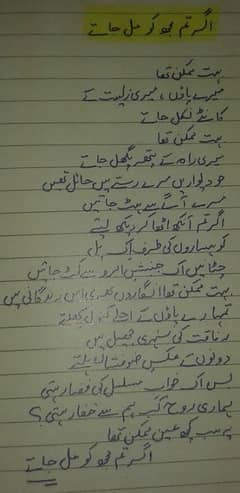 اگر تم مجھ کو مل جاتے
بہت ممکن تھا
میرے پاؤں، میری زیست کے
کانٹے نکل جاتے
بہت ممکن تھا
میری راہ کے پتھر پگھل جاتے
جو دیواریں میرے رستے میں حائل تھیں
میرے آگے سے ہٹ جاتیں
اگر تم آنکھ اٹھا کر دیکھ لیتے
کوہساروں کی طرف اک پل
چٹانیں اک جنبش ابرو سے کٹ جاتیں
بہت ممکن تھا انگاروں بھری اس زندگانی میں
تمہارے پاؤں کے اجلے کنول کھلتے
رفاقت کی سنہری جھیل میں
دونوں کے عکس ضوفشاں ملتے
بس اک خواب مسلسل کی فضا رہتی
ہماری روح کب ہم سے خفا رہتی؟
یہ سب کچھ عین ممکن تھا
اگر تم مجھ کو مل جاتے